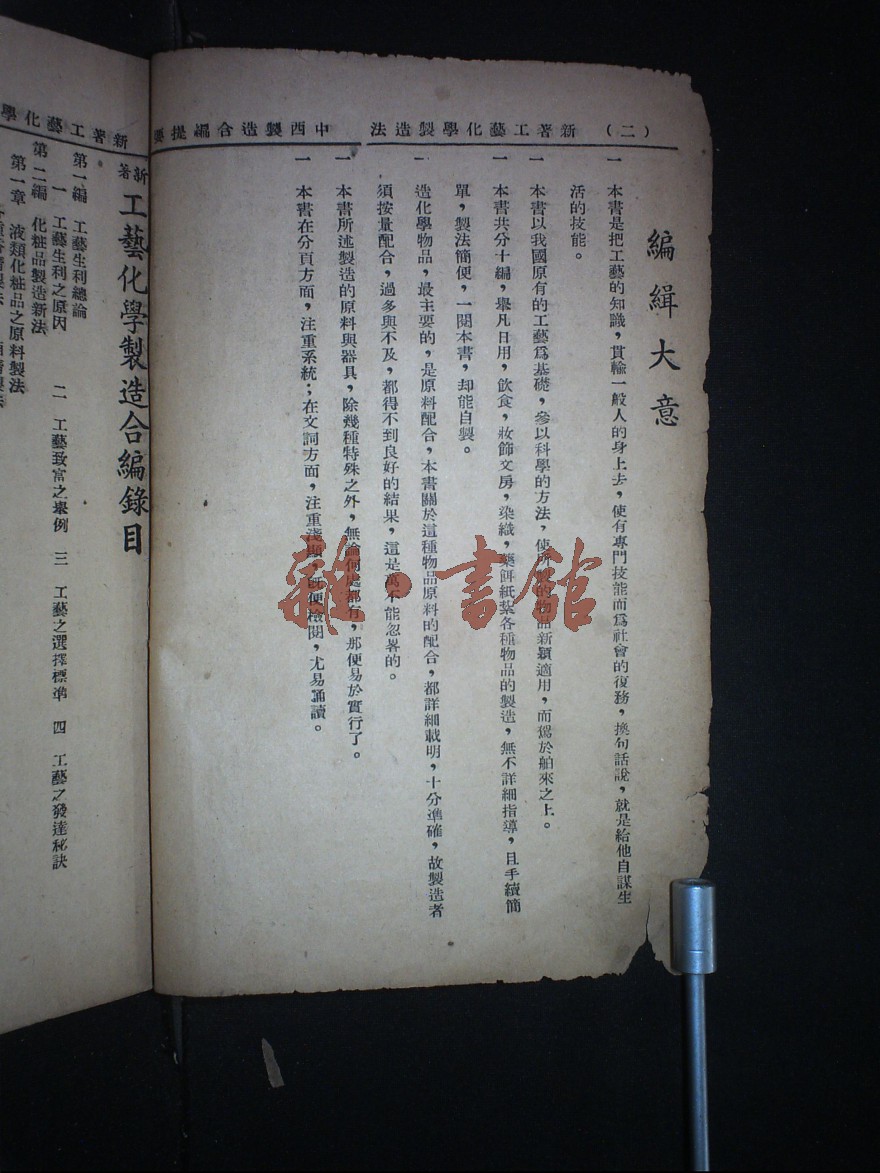 (二) 新著工藝化學製造法 中西製造合編提要
編緝大意
一 本書是把工藝的知識，貫輸一般人的身上去，使有專門技能而爲社會的復務，換句話說，就是給他自謀生
活的技能。
一 本書以我國原有的工藝爲基礎，參以科學的方法，使所製的物品新穎適用，而駕於舶來之上。
一 本書共分十編，舉凡日用，飲食，妝飾文房，染織，藥餌紙紮各種物品的製造，無不詳細指導，且手續簡
單，製法簡便，一閱本書，却能自製。
一 造化學物品，最主要的，是原料配合，本書關於這種物品原料的配合，都詳細載明，十分準確，故製造者
須按量配合，過多與不及，都得不到良好的結果，這是萬不能忽畧的。
一 本書所述製造的原料與器具，除幾種特殊之外，無論何處都有，那便易於實行了。
一 本書在分頁方面，注重系統；在文詞方面，注重淺顯，旣便檢閱，尤易誦讀。
新著工藝化學
新著 工藝化學製造合編錄目
第一編 工藝生利總論
一 工藝生利之原因 二 工藝致富之舉例 三 工藝之選擇標準 四 工藝之發達秘訣
第二編 化粧品製造新法
第一章 液類化粧品之原料製法
雜·書館